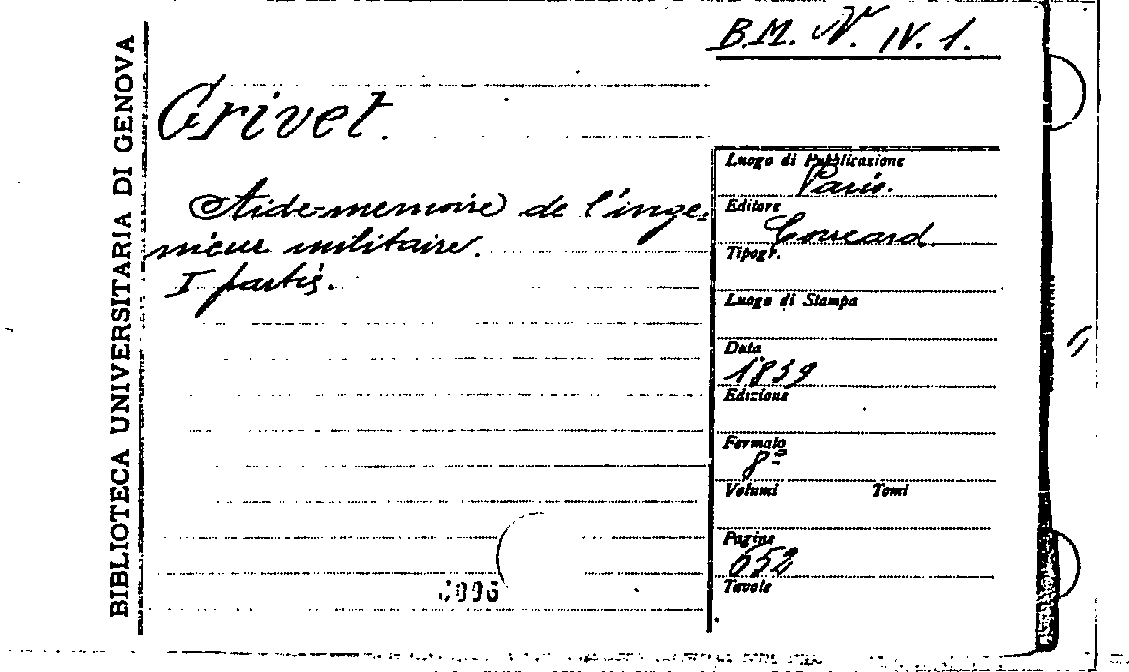 BIBLIOTECA UNIVERSITARIA DI GENOVA
B.M. N. IV. 1.
Grivet.
Aide-memoire de l'inge-
nieur militaire.
I partis.
Luogo di Pubblicazione
Paris.
Editore
Tipogr.
Luogo di Stampa
Data
1839
Edizione
Formato
8º
Volumi Tomi
Pagine
652
Tavole